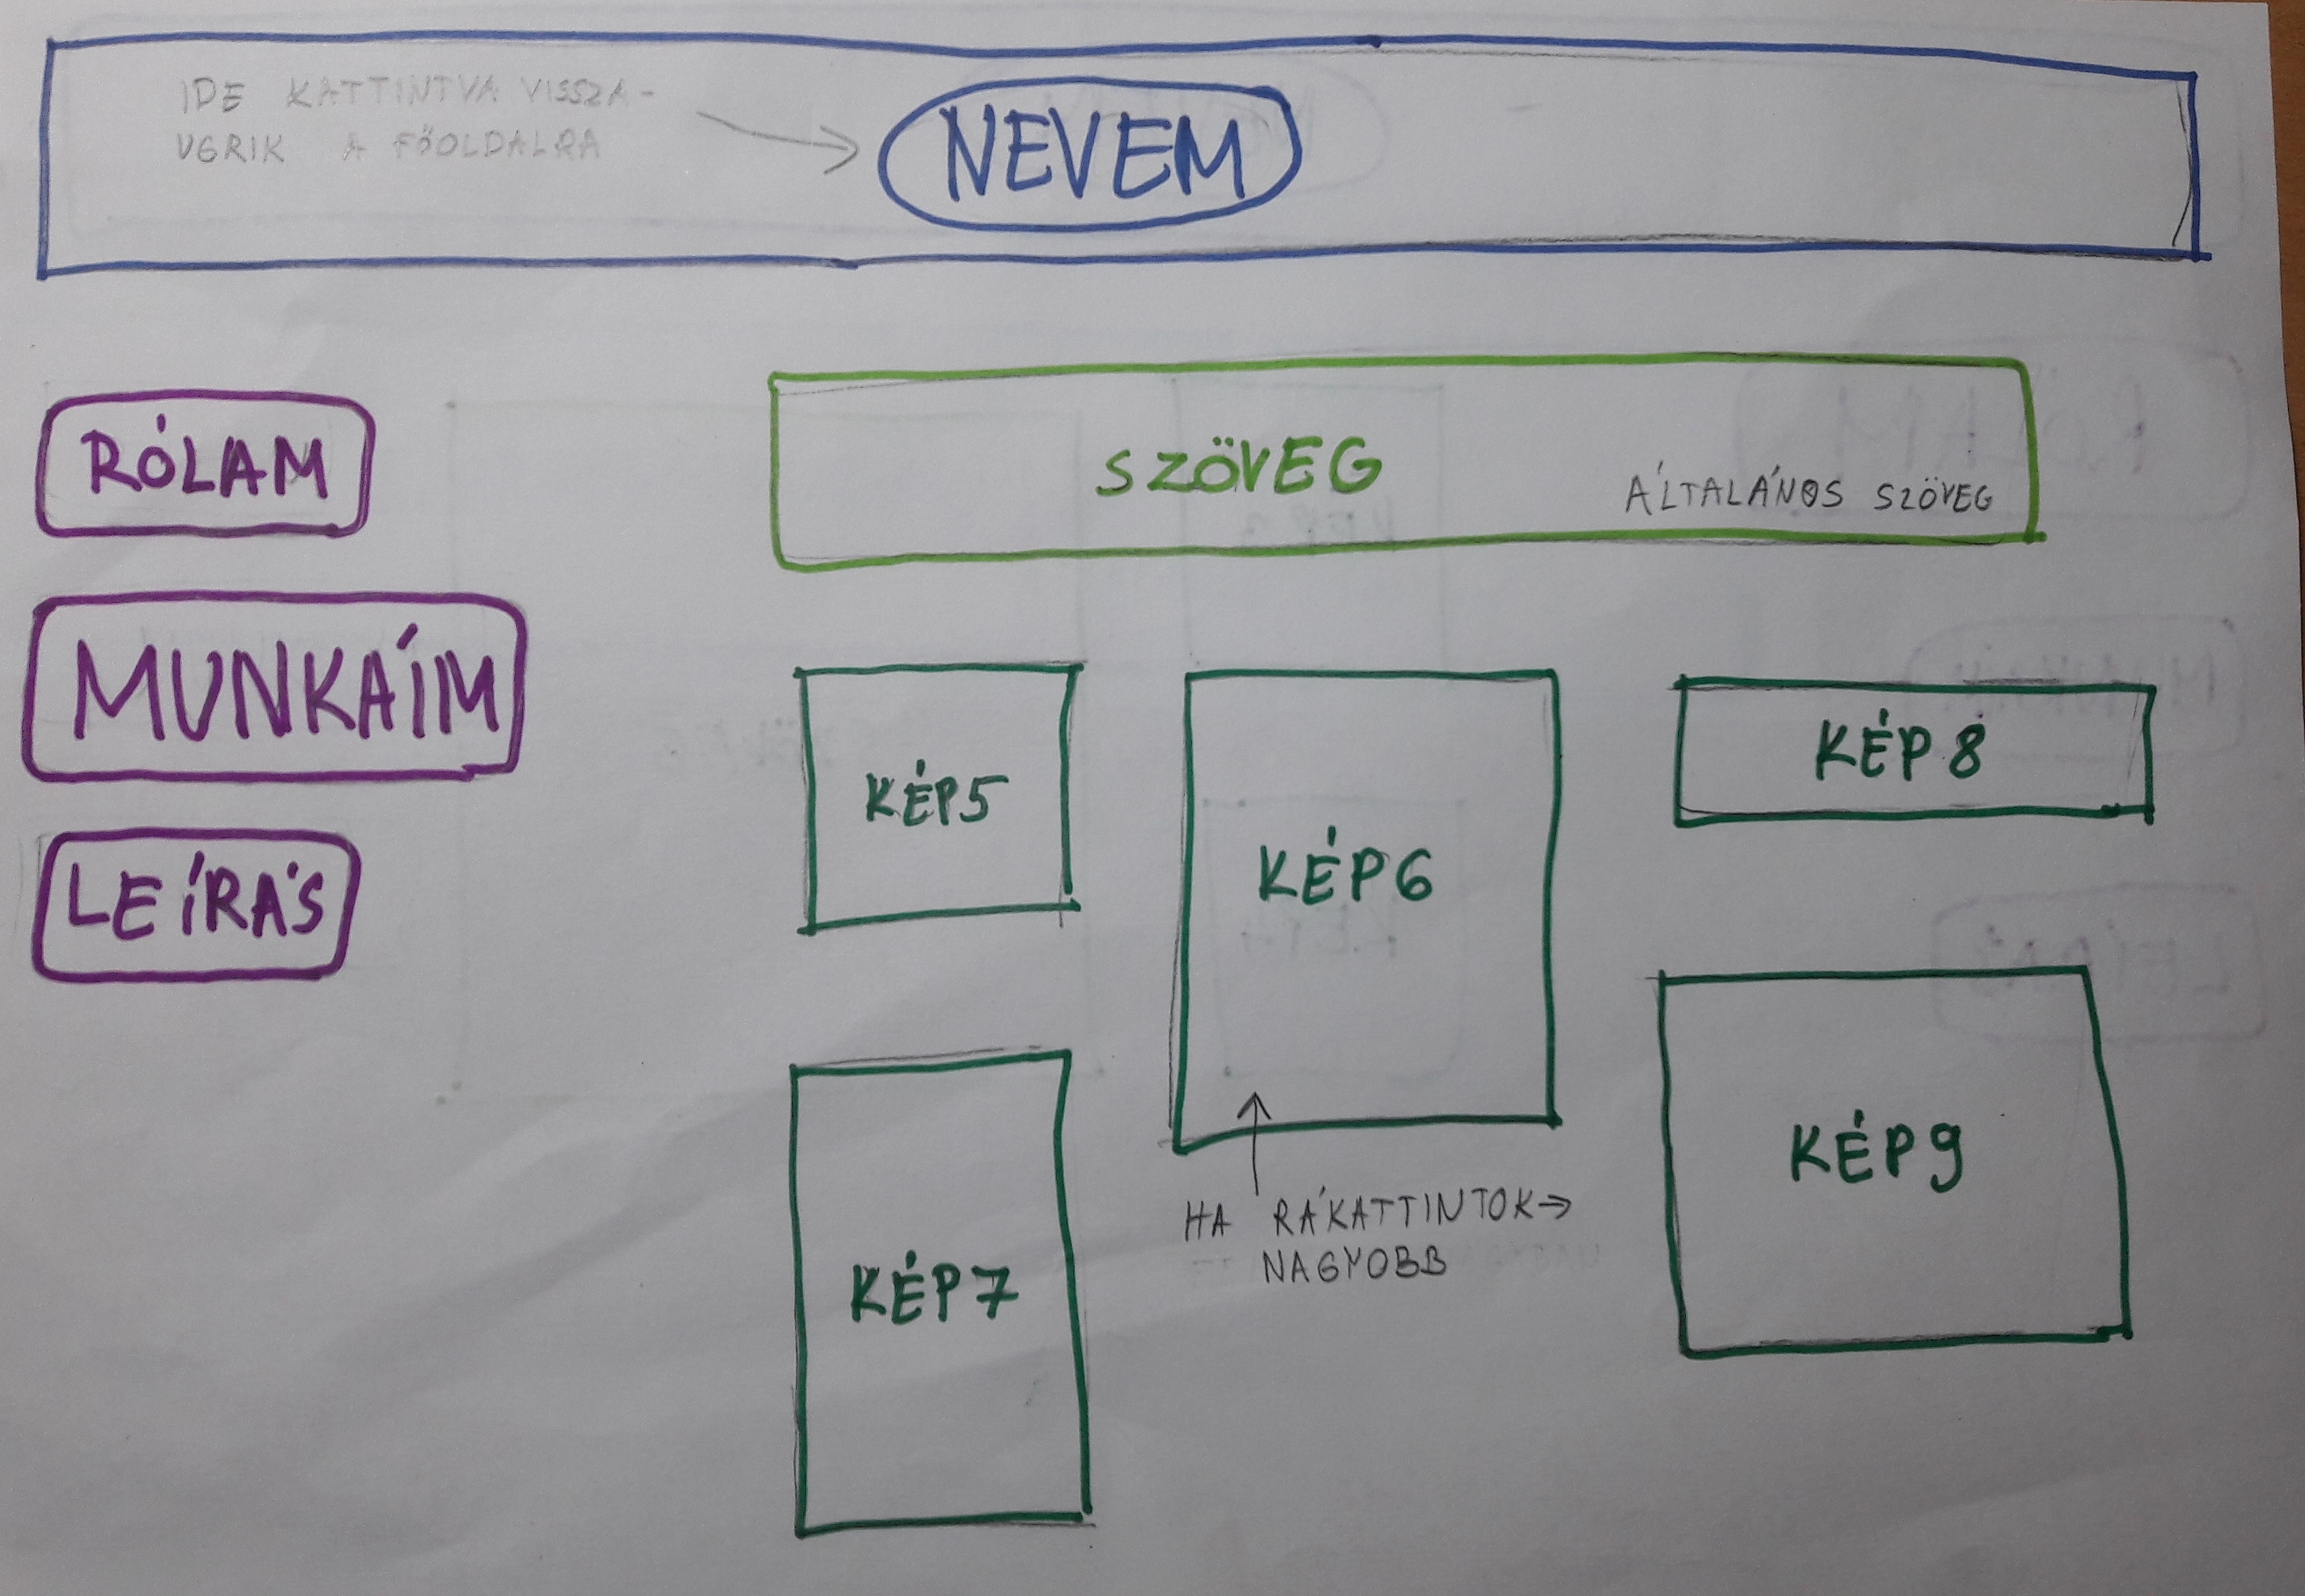 IDE KATTINTVA VISSZA-
UGRIK A FŐOLDALRA
NEVEM
RÓLAM
MUNKÁIM
LEÍRÁS
SZÖVEG
ÁLTALÁNOS SZÖVEG
KÉP5
KÉP6
KÉP 8
KÉP7
HA RÁKATTINTOK→
NAGYOBB
KÉP9